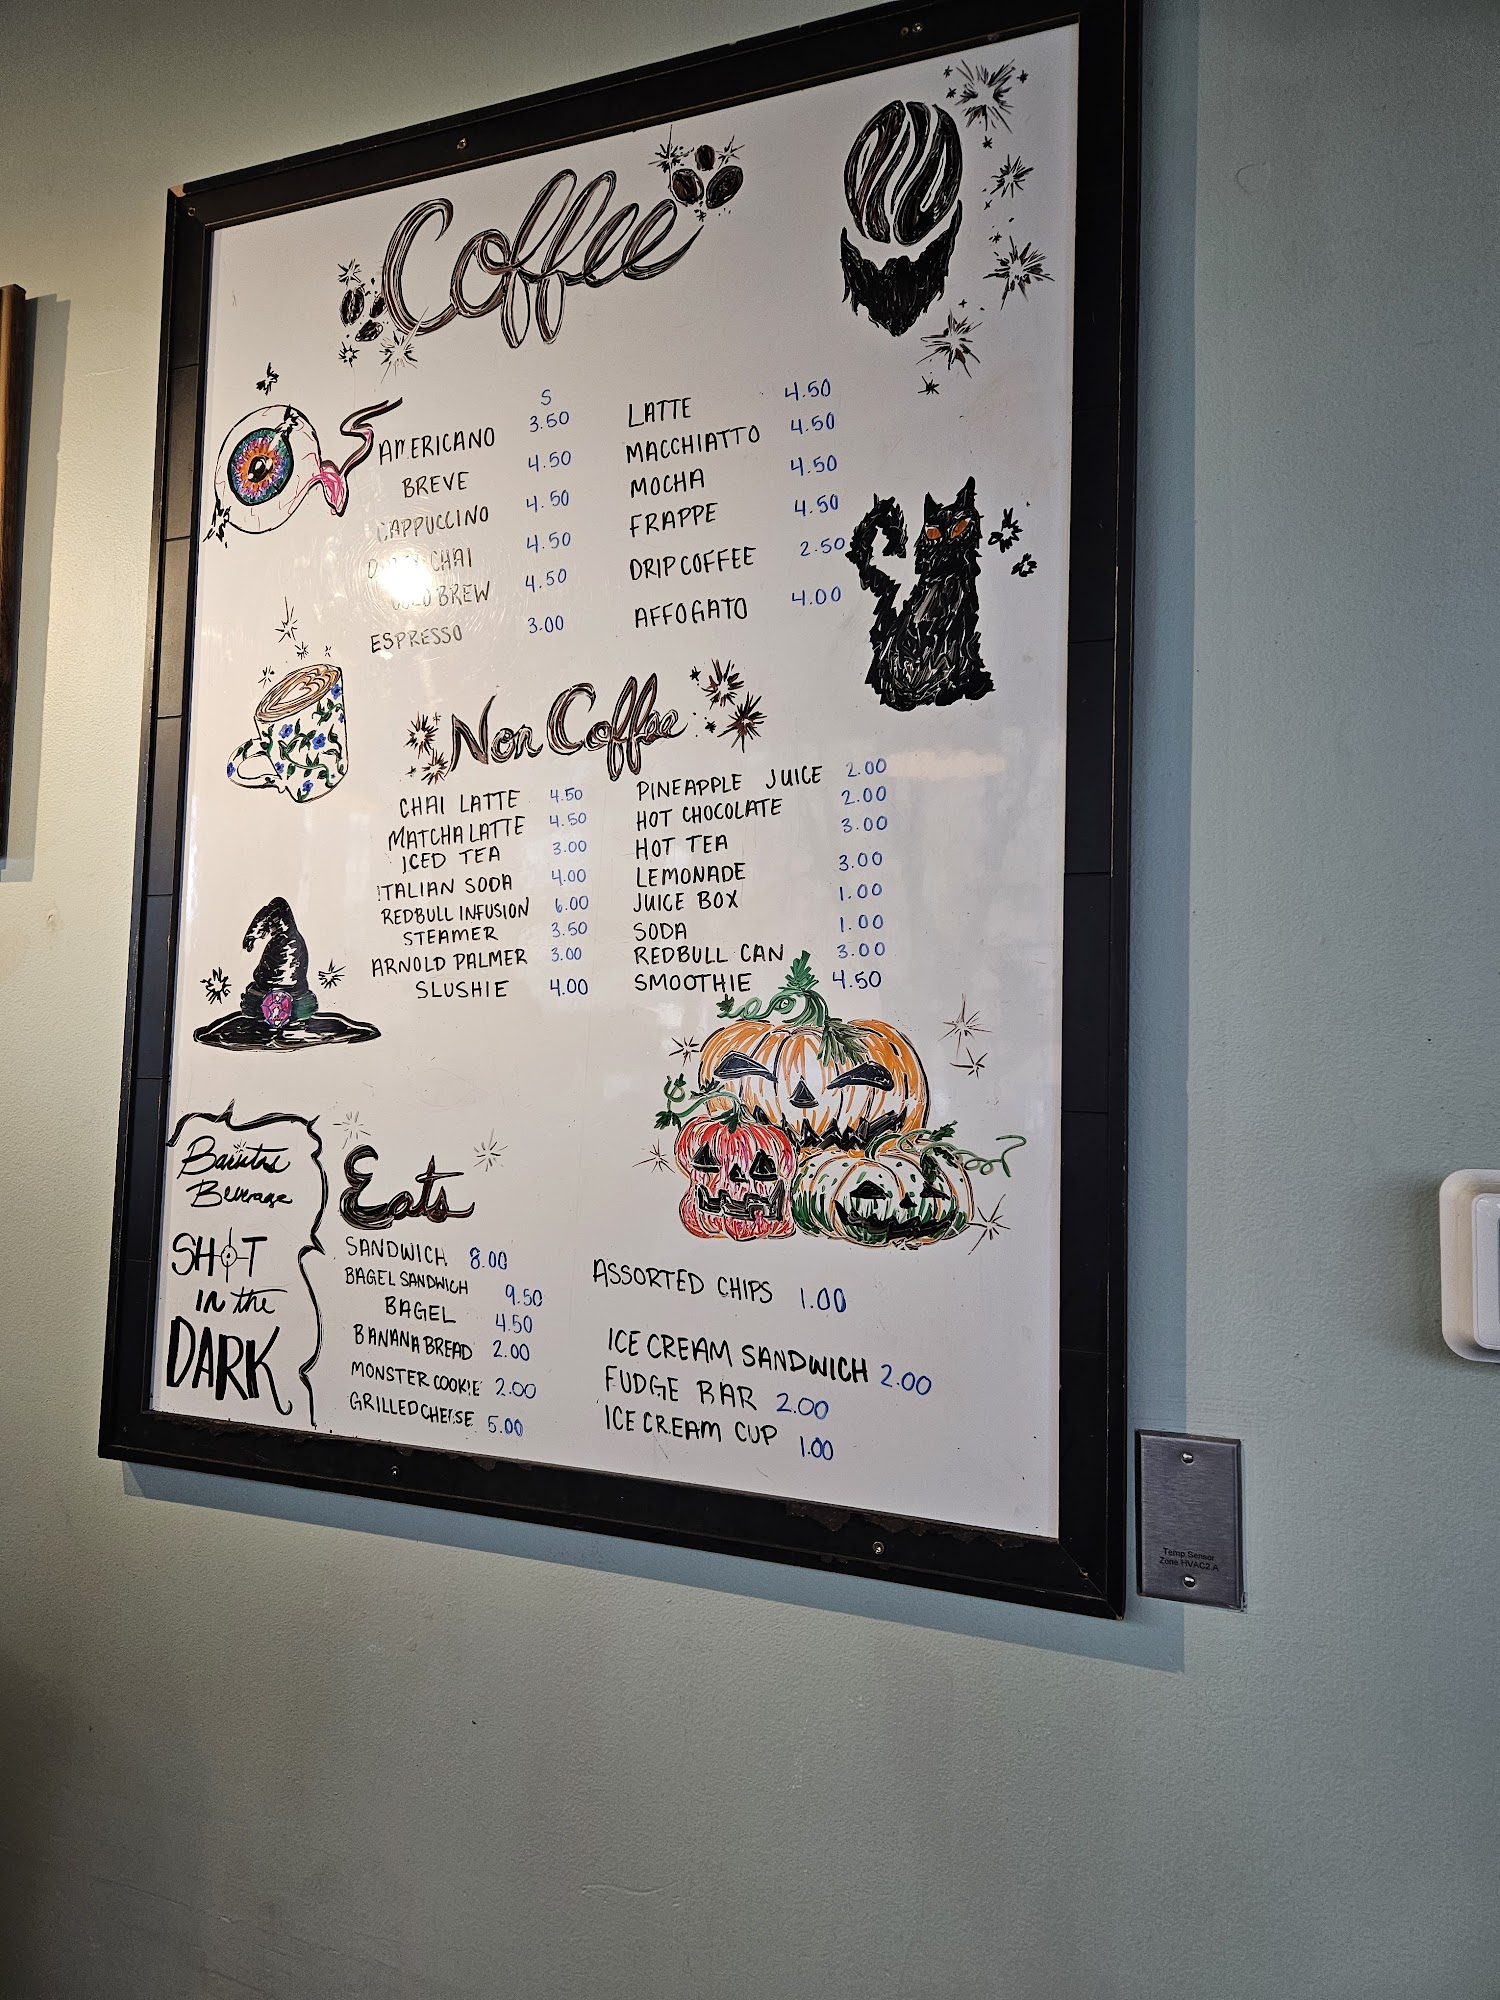 Coffee
S
AMERICANO 3.50
BREVE 4.50
CAPPUCCINO 4.50
CHAI 4.50
COLD BREW 4.50
ESPRESSO 3.00
LATTE 4.50
MACCHIATTO 4.50
MOCHA 4.50
FRAPPE 4.50
DRIP COFFEE 2.50
AFFOGATO 4.00
Non Coffee
CHAI LATTE 4.50
MATCHA LATTE 4.50
ICED TEA 3.00
ITALIAN SODA 4.00
REDBULL INFUSION 6.00
STEAMER 3.50
ARNOLD PALMER 3.00
SLUSHIE 4.00
PINEAPPLE JUICE 2.00
HOT CHOCOLATE 2.00
HOT TEA 3.00
LEMONADE 3.00
JUICE BOX 1.00
SODA 1.00
REDBULL CAN 3.00
SMOOTHIE 4.50
Beverage
SHOT
IN the
DARK
Eats
SANDWICH 8.00
BAGEL SANDWICH 9.50
BAGEL 4.50
BANANA BREAD 2.00
MONSTER COOKIE 2.00
GRILLED CHEESE 5.00
ASSORTED CHIPS 1.00
ICE CREAM SANDWICH 2.00
FUDGE BAR 2.00
ICE CREAM CUP 1.00
Temp Sensor
Zone HVAC2.A